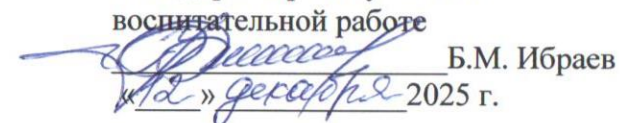 воспитательной работе
Б.М. Ибраев
«12» декабря 2025 г.